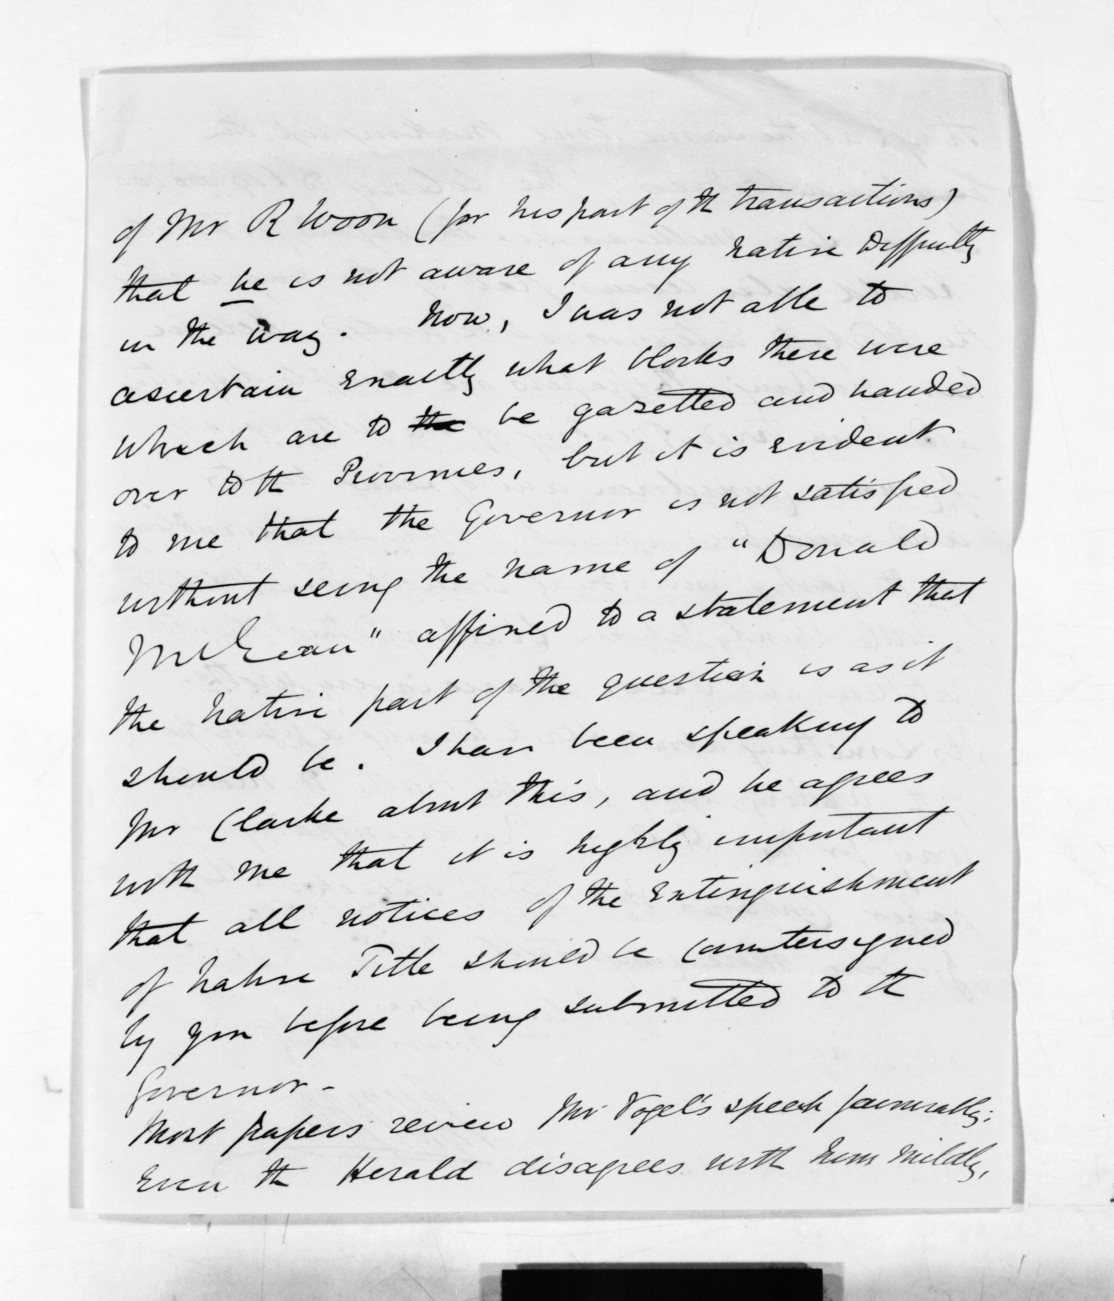 of Mr R Woon (for his part of th transactions)
that he is not aware of any native Difficulty
in the way. Now, I was not able to
ascertain exactly what blocks there were
which are to the be gazetted and handed
over to th Provinces, but it is evident
to me that the Governor is not satisfied
without seing the name of "Donald
McLean" affixed to a statement that
the Native part of the question is as it
should be. I have been speaking to
Mr Clarke about this, and he agrees
with me that it is highly important
that all notices of the Extinguishment
of Native Title should be countersigned
by you before being submitted to th
Governor -
Most papers review Mr Vogel's speech favourably:
Even th Herald disagrees with him mildly,